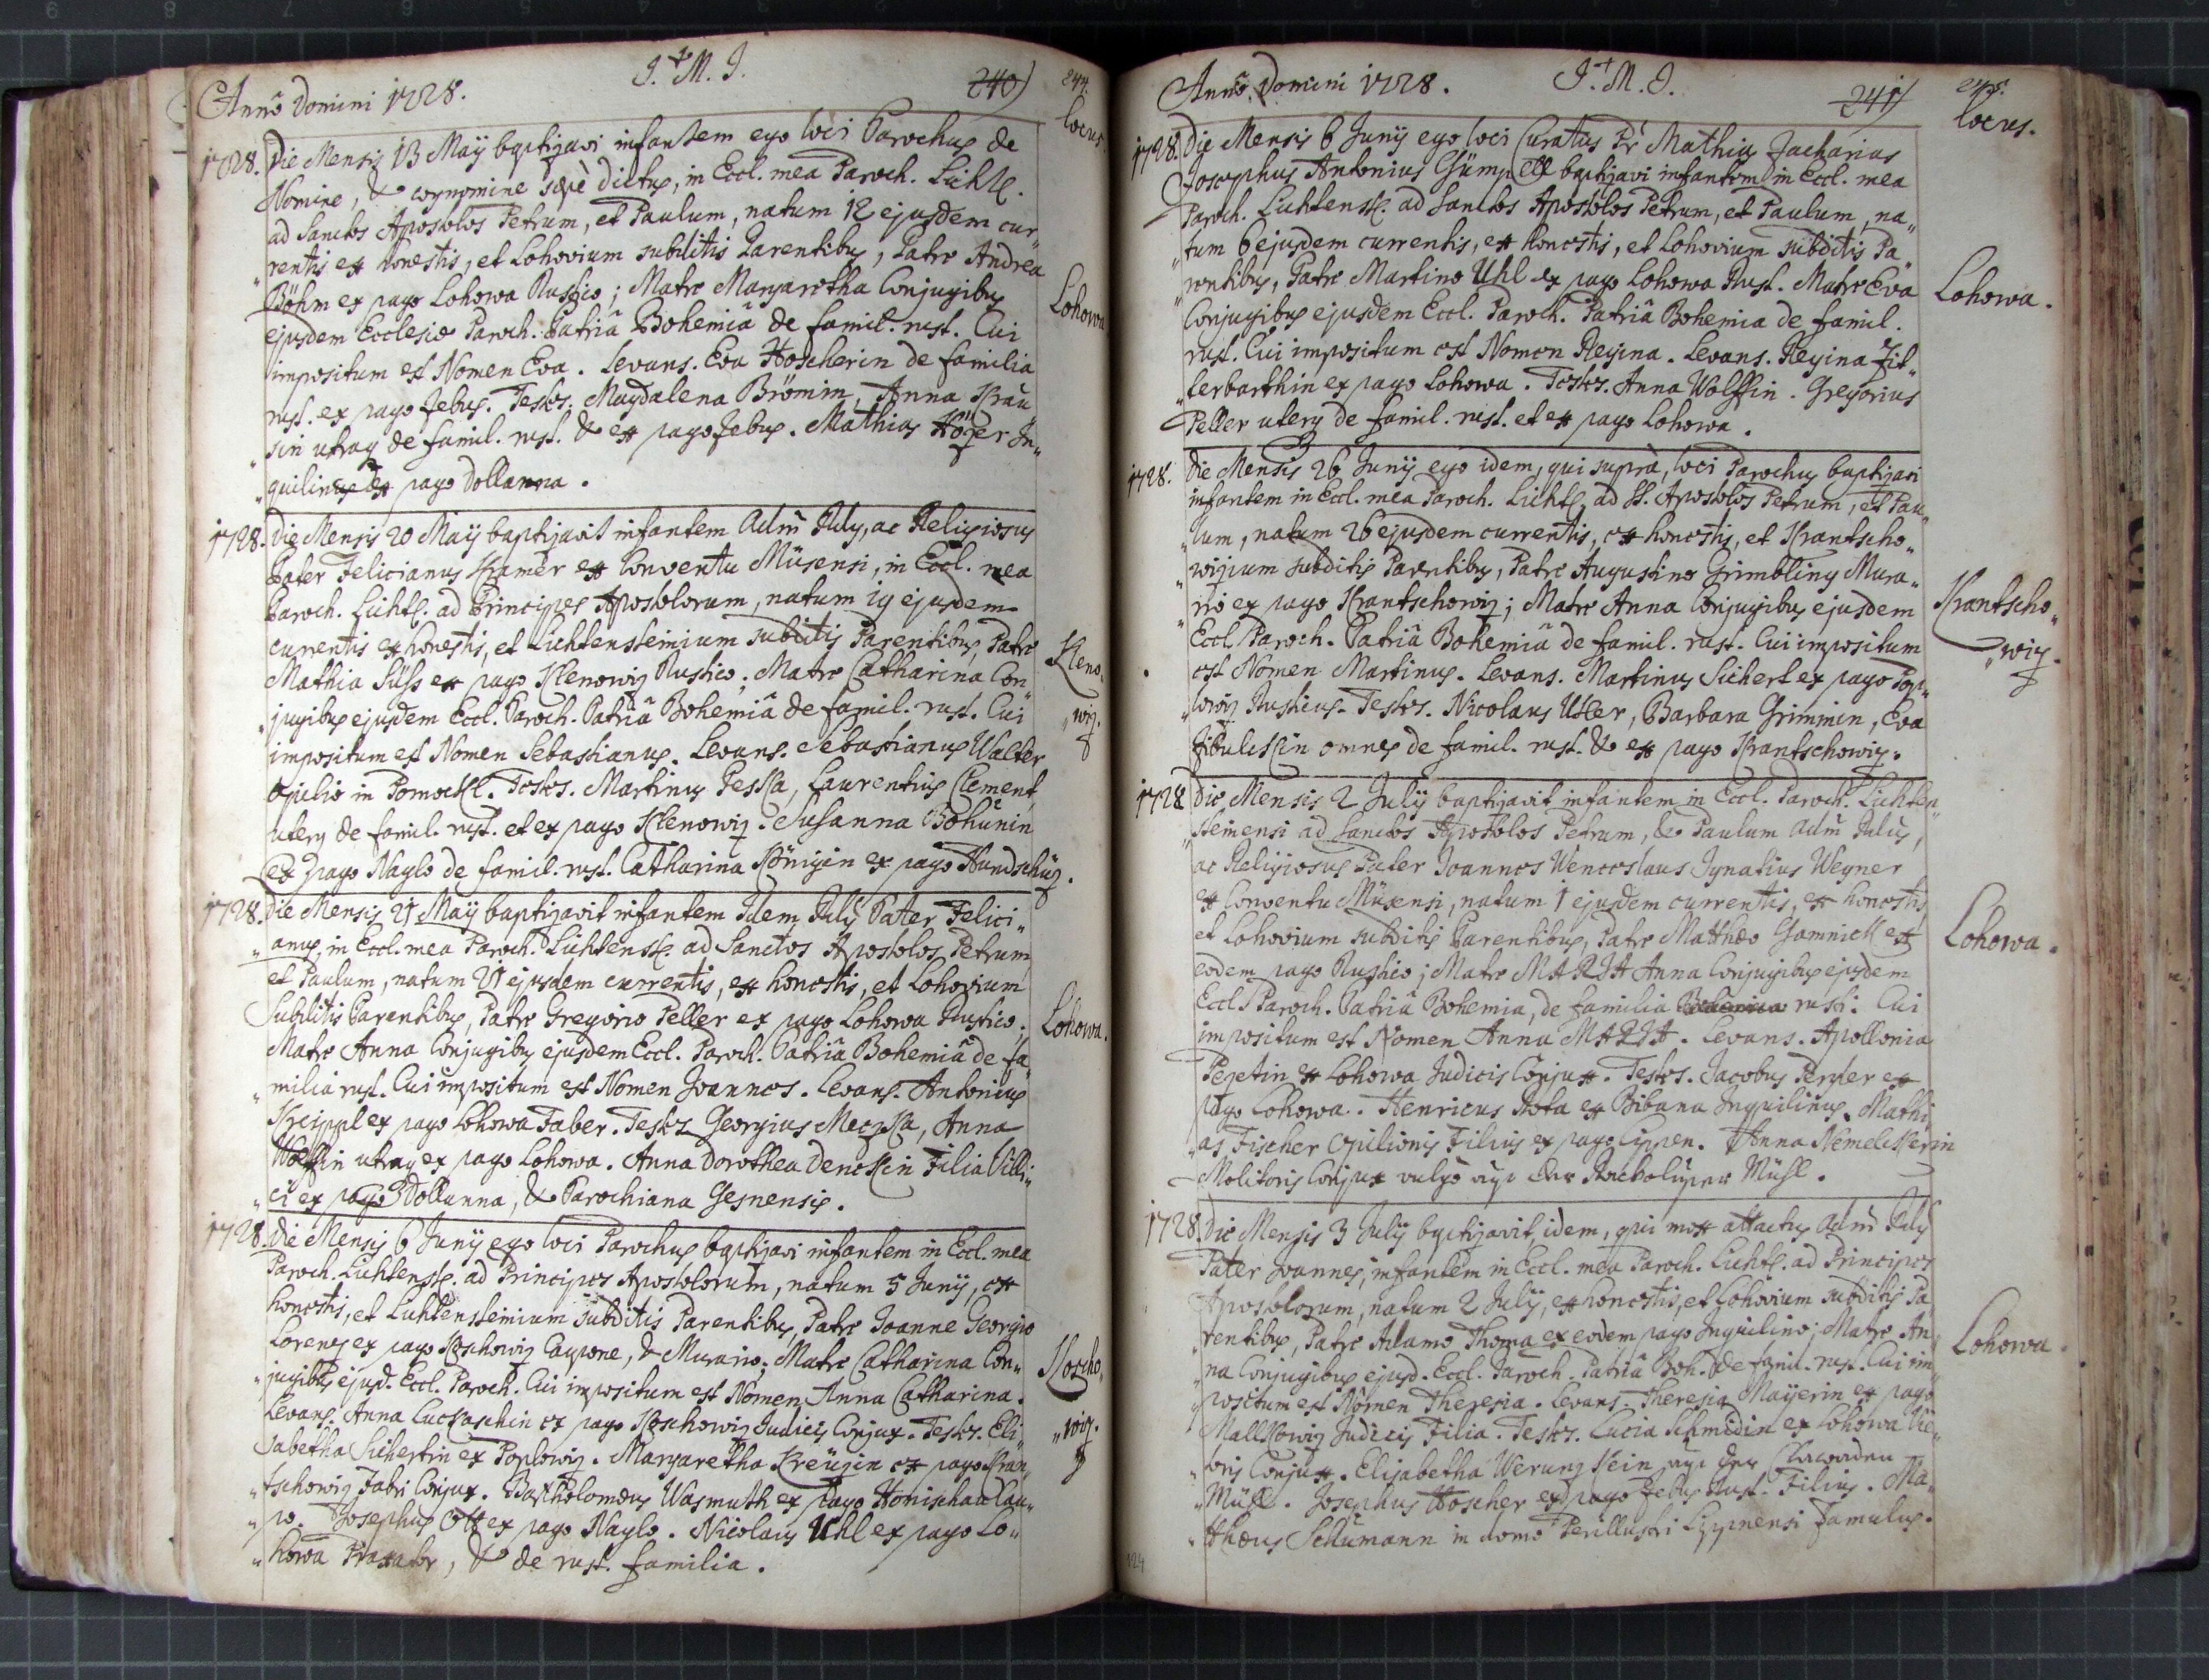 Anno Domini 1728. J. M. J. 240) 244.
locus.
1728. Die Mensis 13 Maÿ baptizavi infantem ego loci Parochus de
Nomine, & cognomine sæpè dictus, in Eccl. mea Paroch. Lichts.
ad Sanctos Apostolos Petrum, et Paulum, natum 12 ejusdem cur„
„rentis ex honestis, et Lohovium subditis Parentibus, Patre Andrea
Böhm ex pago Lohowa Rustico; Matre Margaretha Conjugibus
Lohowa
ejusdem Ecclesiæ Paroch. Patriâ Bohemiâ de famil. rust. Cui
impositum est Nomen Eva. Levans. Eva Hoscherin de familia
rust. ex pago Zebus. Testes. Magdalena Brömin, Anna Krau
„sin utraq de famil. rust. & ex pago Zebus. Mathias Höger In„
„quilinus ex pago Dollanna.
1728. Die Mensis 20 Maÿ baptizavit infantem Adm Rdus, ac Religiosus
Pater Felicianus Kramer ex Conventu Müsensi, in Eccl. mea
Paroch. Lichts. ad Principes Apostolorum, natum 19 ejusdem
currentis ex honestis, et Lichtensteinium subditis Parentibus, Patre
Kleno„
Mathia Süss ex pago Klenowiz Rustico; Matre Catharina Con„
„jugibus ejusdem Eccl. Paroch. Patriâ Bohemiâ de famil. rust. Cui
„wiz.
impositum est Nomen Sebastianus. Levans. Sebastianus Walter
Opilio in Pomockl. Testes. Martinus Peska, Laurentius Clement,
uterq de famil. rust. et ex pago Klenowiz. Susanna Bohunin
ex pago Naglo de famil. rust. Catharina Königin ex pago Hundschüz.
1728. Die Mensis 21 Maÿ baptizavit infantem Idem Rdus Pater Felici„
„anus, in Eccl. mea Paroch. Lichtenst. ad Sanctos Apostolos Petrum
et Paulum, natum 21 ejusdem currentis, ex honestis, et Lohovium
Subditis Parentibus, Patre Gregorio Peller ex pago Lohowa Rustico;
Lohowa.
Matre Anna Conjugibus ejusdem Eccl. Paroch. Patriâ Bohemiâ de fa„
„milia rust. Cui impositum est Nomen Joannes. Levans. Antonius
Kreippl ex pago Lohowa Faber. Testes Georgius Meczka, Anna
Wolffin utraq ex pago Lohowa. Anna Dorothea Denckin Filia Villi„
„ci ex pago Dollanna, & Parochiana Gesnensis.
1728. Die Mensis 6 Junÿ ego loci Parochus baptizavi infantem in Eccl. mea
Paroch. Lichtenst. ad Principes Apostolorum, natum 5 Junÿ, ex
honestis, et Lichtensteinium subditis Parentibus, Patre Joanne Georgio
Lorenz ex pago Koschowiz Caupone, & Murario; Matre Catharina Con„
Koscho„
„jugibus ejusd. Eccl. Paroch. Cui impositum est Nomen Anna Catharina.
Levans. Anna Luckaschin ex pago Koschowiz Judicis Conjux. Testes. Eli„
„wiz.
sabetha Sichertin ex Poplowiz. Margaretha Kreüzin ex pago Kran„
„tschowiz Fabri Conjux. Bartholomæus Wasmuth ex pago Honischau Cau„
„po. Josephus Ott ex pago Naglo. Nicolaus Uhl ex pago Lo„
„howa Praxator, & de rust. familia.
Anno Domini 1728. J. M. J. 241) 245.
locus.
1728. Die Mensis 6 Junÿ ego loci Curatus Pr Mathias Zacharias
Josephus Antonius Gümpell baptizavi infantem in Eccl. mea
Paroch. Lichtenst. ad Sanctos Apostolos Petrum, et Paulum, na„
„tum 6 ejusdem currentis, ex honestis, et Lohovium subditis Pa„
„rentibus, Patre Martino Uhl ex pago Lohowa Rust. Matre Eva
Lohowa.
Conjugibus ejusdem Eccl. Paroch. Patriâ Bohemia de famil.
rust. Cui impositum est Nomen Regina. Levans. Regina Fit„
„terbarthin ex pago Lohowa. Testes. Anna Wolffin. Gregorius
Peller uterq de famil. rust. et ex pago Lohowa.
1728. Die Mensis 26 Junÿ ego idem, qui suprà, loci Parochus baptizavi
infantem in Eccl. mea Paroch. Lichts. ad SS. Apostolos Petrum, et Pau„
„lum, natum 26 ejusdem currentis, ex honestis, et Krantscho„
„wizium subditis Parentibus, Patre Augustino Grimbling Mura„
„rio ex pago Krantschowiz; Matre Anna Conjugibus ejusdem
Krantscho„
Eccl. Paroch. Patriâ Bohemiâ de famil. rust. Cui impositum
„wiz.
est Nomen Martinus. Levans. Martinus Sichert ex pago Pop„
„lowiz Rusticus. Testes. Nicolaus Utler, Barbara Grimmin, Eva
Zibulckin omnes de famil. rust. & ex pago Krantschowiz.
1728 Die Mensis 2 Julÿ baptizavit infantem in Eccl. Paroch. Lichten„
„steinensi ad Sanctos Apostolos Petrum, & Paulum Adm Rdus,
ac Religiosus Pater Joannes Wenceslaus Ignatius Wegner
ex Conventu Müsensi, natum 1 ejusdem currentis, ex honestis
et Lohovium subditis Parentibus, Patre Matthæo Gamnick ex
Lohowa.
eodem pago Rustico; Matre MARIA Anna Conjugibus ejusdem
Eccl. Paroch. Patriâ Bohemia, de familia rusti. Cui
impositum est Nomen Anna MARIA. Levans. Apollonia
Pezetin ex Lohowa Judicis Conjux. Testes. Jacobus Perpler ex
pago Lohowa. Henricus Rota ex Bibana Inquilinus. Mathi„
„as Fischer Opilionis Filius ex pago Lippen. Anna Nemeleckerin
Molitoris Conjux vulgò auf der Racholuper Mühl.
1728. Die Mensis 3 Julÿ baptizavit, idem, qui mox attactus Adm Rdus
Pater Joannes, infantem in Eccl. mea Paroch. Lichts. ad Principes
Apostolorum, natum 2 Julÿ, ex honestis, et Lohovium subditis Pa„
„rentibus, Patre Adamo Thoma ex eodem pago Inquilino; Matre An„
Lohowa.
„na Conjugibus ejusd. Eccl. Paroch. Patriâ Boh. de famil. rust. Cui im„
„positum est Nomen Theresia. Levans. Theresia Maÿerin ex pago
Mallkowiz Judicis Filia. Testes. Lucia Schmidin ex Lohowa Vie„
„toris Conjux. Elisabetha Werungkein auf der
„Mühl. Josephus Hoscher ex pago Zebus Rust. Filius. Ma„
„tthæus Schumann in domo Perillustri Lippnensi Famulus.
124